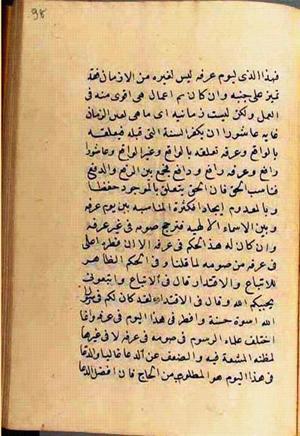 ٩٨
فهذا الذى ليوم عرفه ليس لغيره من الازمان فقد
تميز على جنبه وان كان ثم اعمال هى اقوى منه فى
العمل ولكن ليست زمانية اى ما هى لعين الزمان
غايه عاشورا ان يكفر السنة التى قبله فيعلقه
بالواقع وعرفه تعلقه بالواقع وغير الواقع وعاشورا
رافع وعرفه رافع ودافع فجمع بين الرفع والدفع
فناسب الحق فان الحق يتعلق بالموجود حفظا
وبالمعدوم ايجادا فكثرة المناسبه بين يوم عرفه
وبين الاسماء الالهيه فترجح صومه فى غير عرفه
وان كان له هذا الحكم فى عرفه الا ان فطره اعلى
فى عرفه من صومه لما قلناه وفى الحكم الظاهر
للاتباع والاقتداء قال فى الاتباع واتبعونى
يحببكم الله وقال فى الاقتداء لقد كان لكم فى رسول
الله اسوة حسنة وافطر فى هذا اليوم فى عرفه وانما
اختلف علماء الرسوم فى صومه فى عرفه لا فى غيرها
لمظنه المشقة فيه والضعف عن الدعا غالبا والدعا
فى هذا اليوم هو المطلوب من الحاج فان افضل الدعا